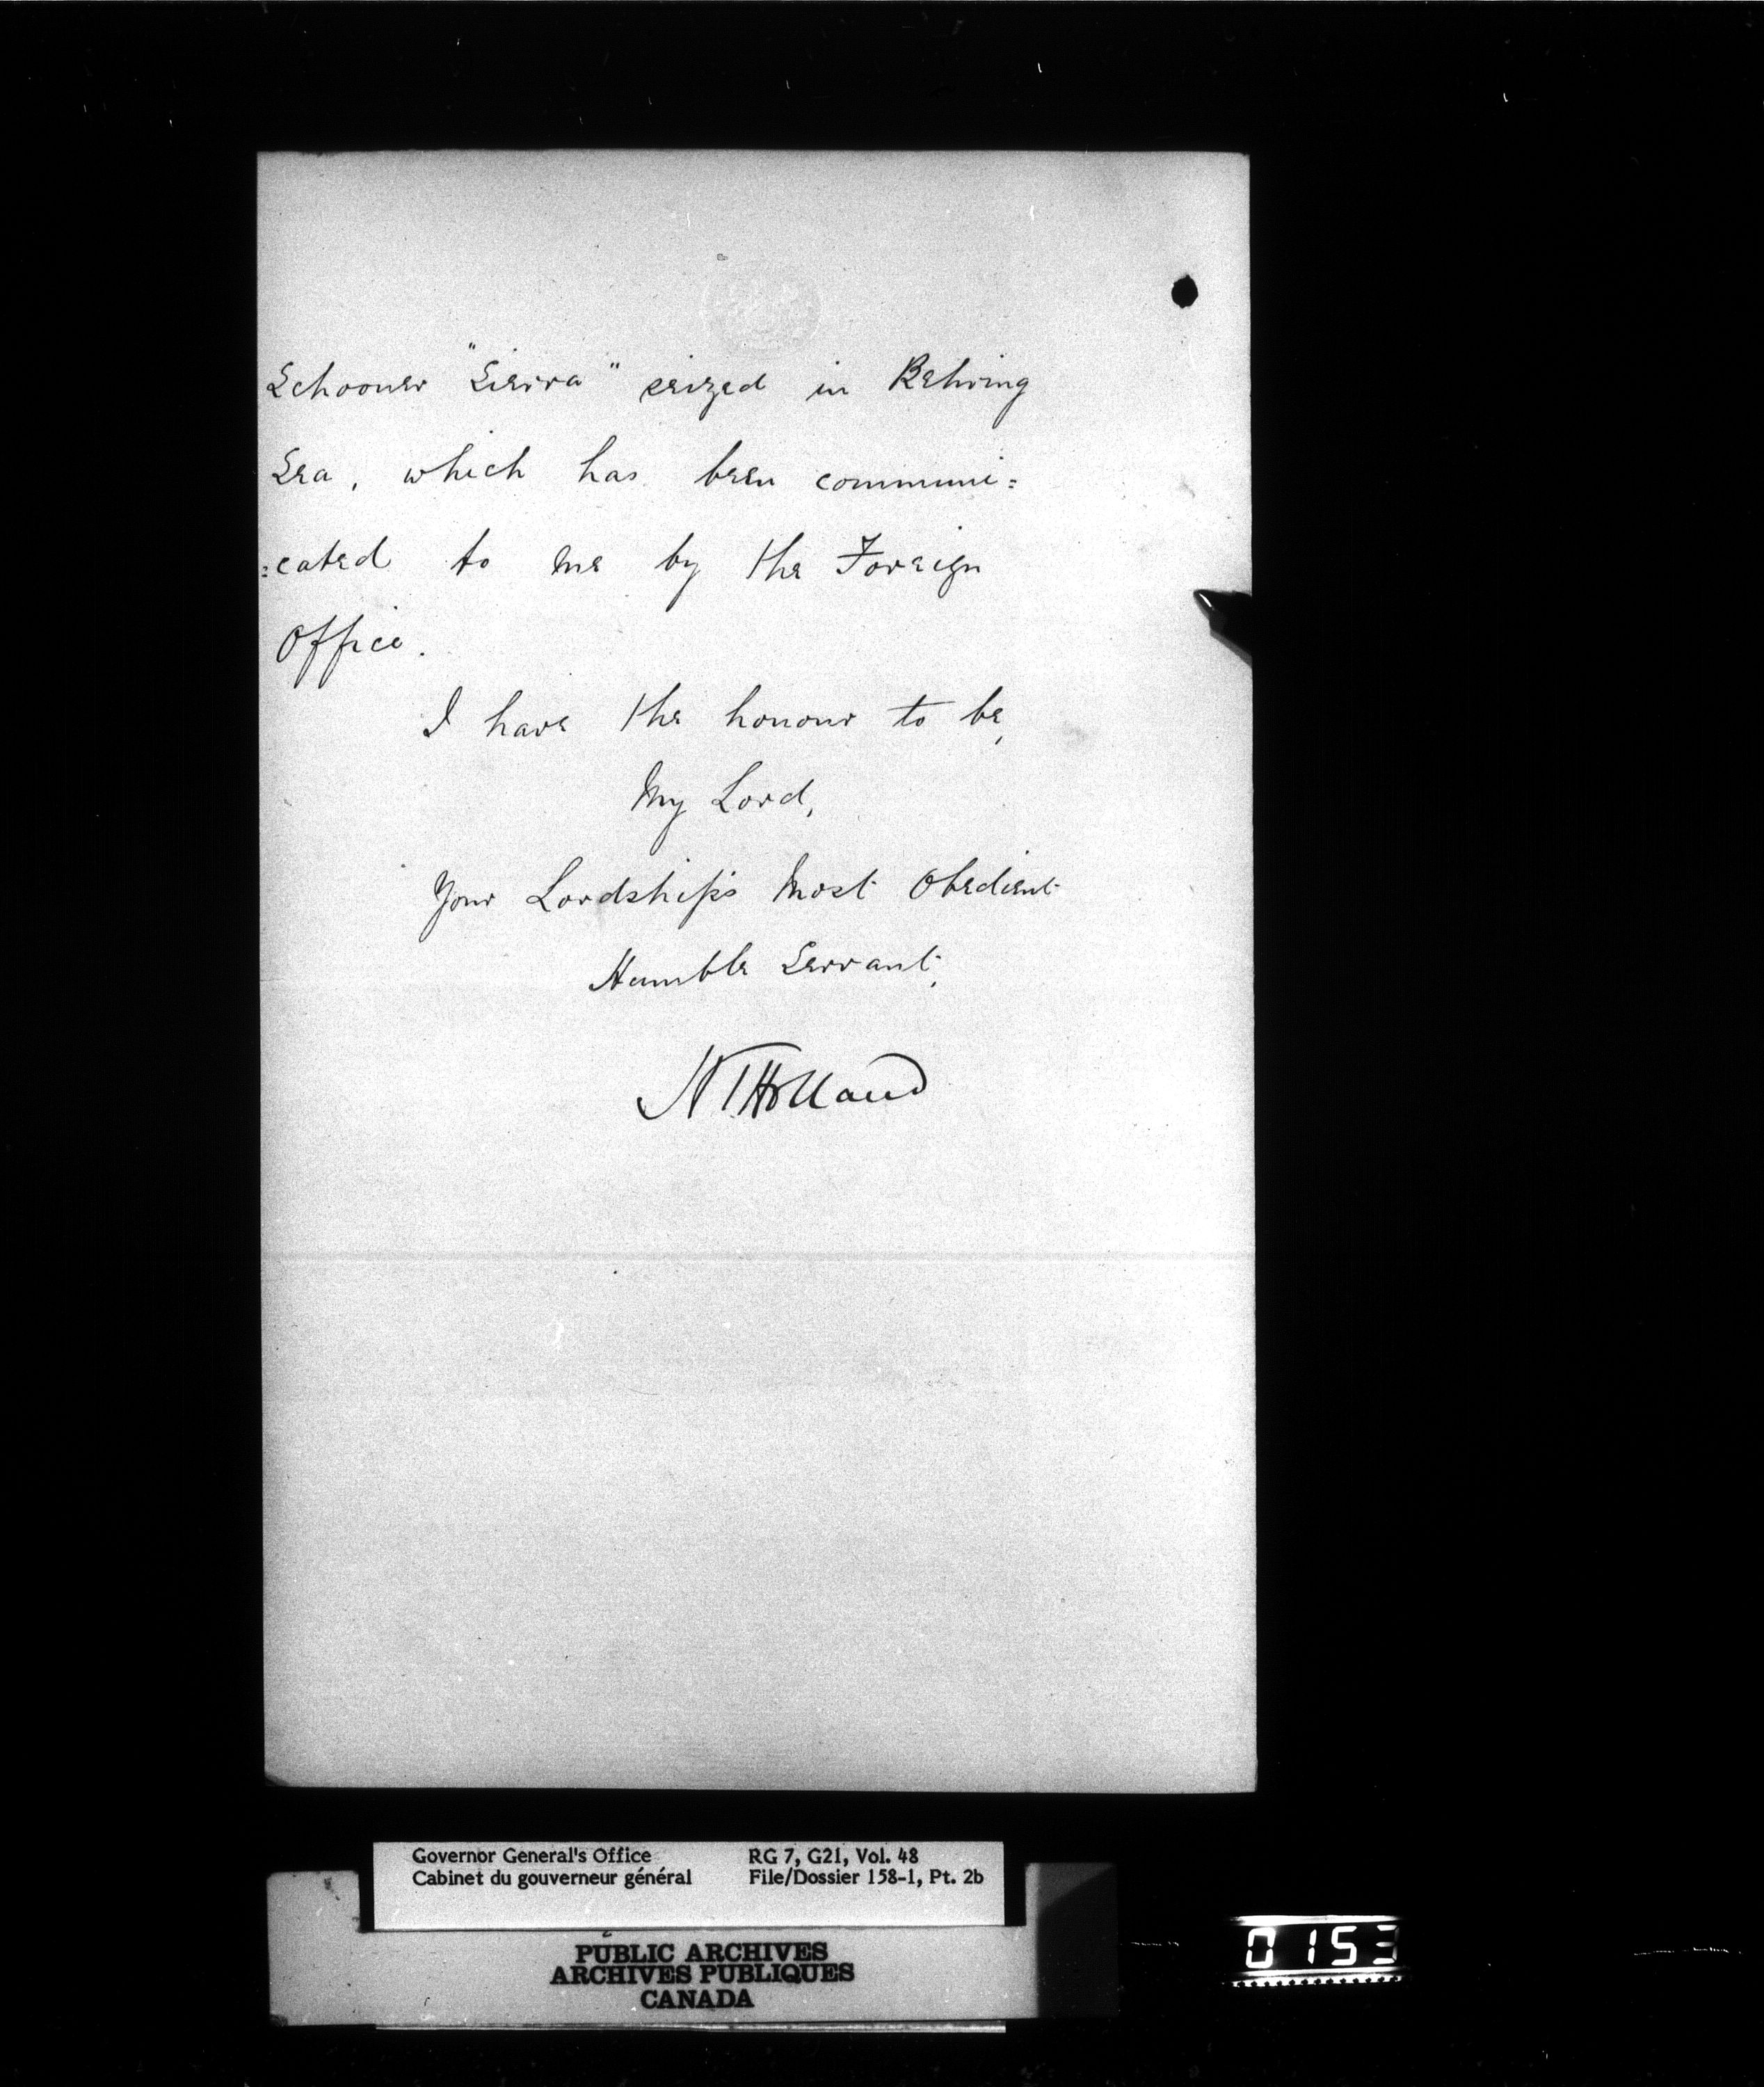 Schooner "Sierra" seized in Behring
Sea, which has been communi=
=cated to me by the Foreign
Office.
I have the honour to be,
My Lord,
Your Lordship's Most Obedient
Humble Servant,
H T Holland
Governor General's Office
Cabinet du gouverneur général
RG 7, G21, Vol. 48
File/Dossier 158-1, Pt. 2b
PUBLIC ARCHIVES
ARCHIVES PUBLIQUES
CANADA
0153